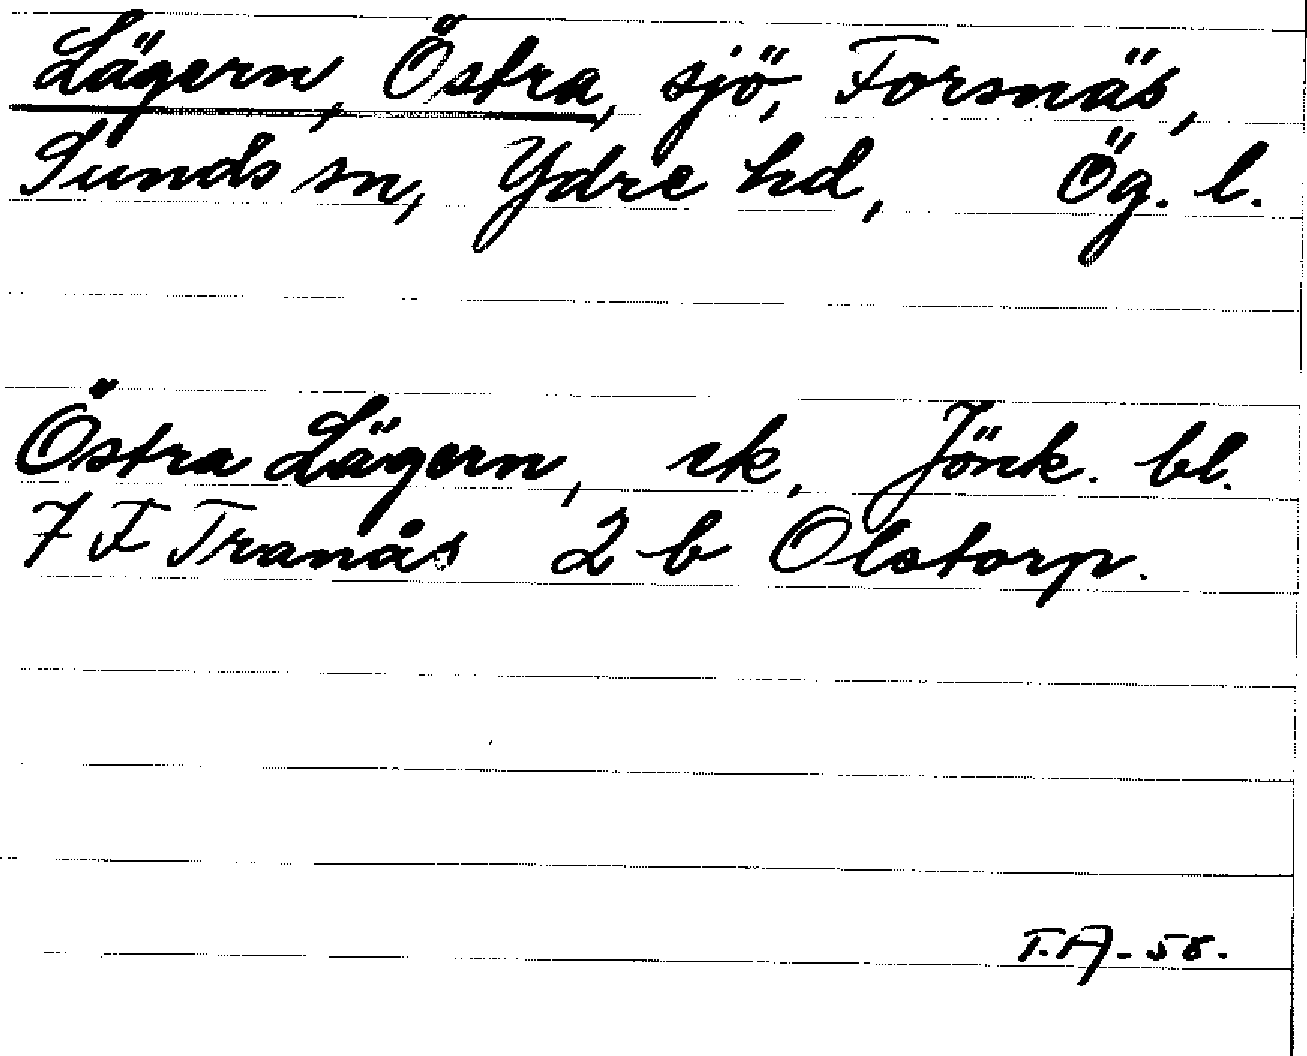 Lägern, Östra, sjö, Forsnäs,
Sunds sn, Ydre hd, Ög. l.
Östra Lägern, ek. Jönk. bl.
7 F Tranås 2 b Olstorp.
T.A-58.